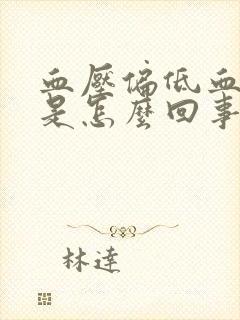 血壓偏低血
是怎麼回事
林達